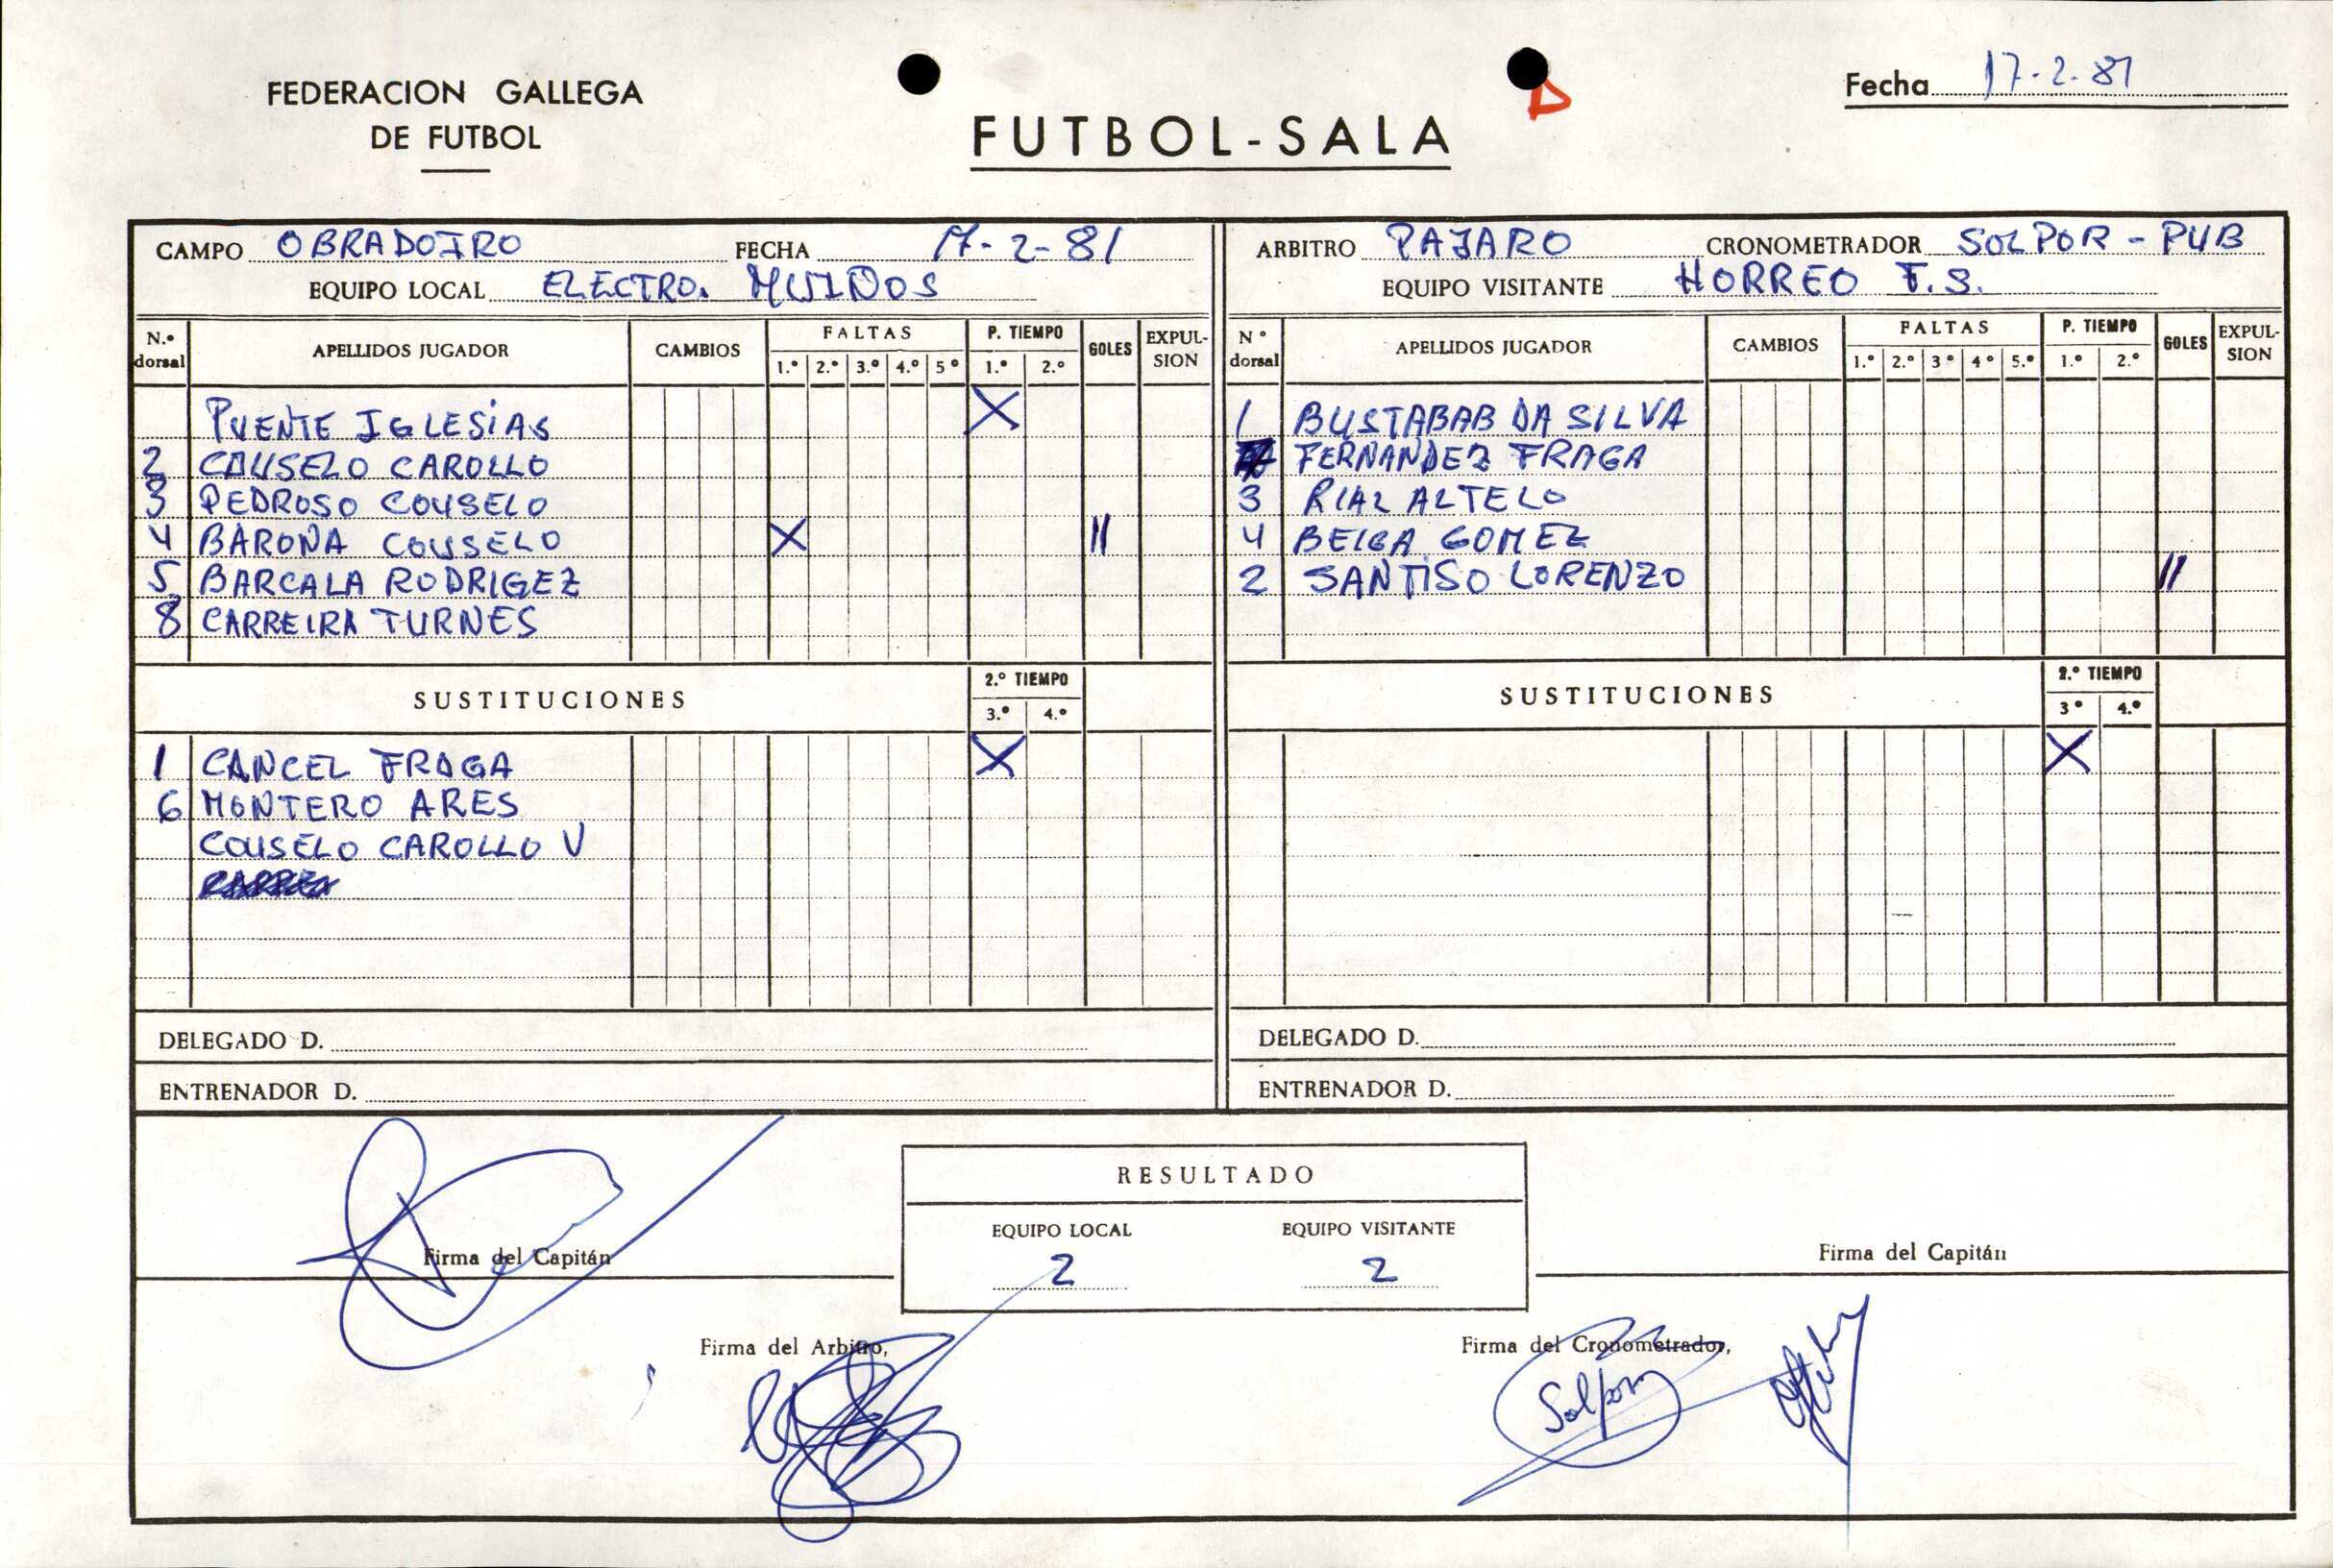 FEDERACION GALLEGA
DE FUTBOL
FUTBOL-SALA
Fecha 17-2-81
CAMPO OBRADOIRO FECHA 17-2-81
EQUIPO LOCAL ELECTRO. MUIDOS
N.º dorsal APELLIDOS JUGADOR CAMBIOS FALTAS 1.º 2.º 3.º 4.º 5º P. TIEMPO 1.º 2.º GOLES EXPULSION
PUENTE IGLESIAS X
2 CAUSELO CAROLLO
3 PEDROSO COUSELO
4 BARONA COUSELO X II
5 BARCALA RODRIGEZ
8 CARREIRA TURNES
SUSTITUCIONES 2.º TIEMPO 3.º 4.º
1 CANCEL FRAGA X
6 MONTERO ARES
COUSELO CAROLLO V
DELEGADO D.
ENTRENADOR D.
ARBITRO PAJARO CRONOMETRADOR SOLPOR - PUB
EQUIPO VISITANTE HORREO F.S.
Nº dorsal APELLIDOS JUGADOR CAMBIOS FALTAS 1.º 2.º 3º 4º 5.º P. TIEMPO 1.º 2.º GOLES EXPULSION
1 BUSTABAB DA SILVA
FERNANDEZ FRAGA
3 RIAL ALTELO
4 BEIGA GOMEZ
2 SANTISO LORENZO II
SUSTITUCIONES 2.º TIEMPO 3º 4.º
X
DELEGADO D.
ENTRENADOR D.
RESULTADO
EQUIPO LOCAL EQUIPO VISITANTE
2 2
Firma del Capitán
Firma del Capitán
Firma del Arbitro,
Firma del Cronometrador,
Solpor